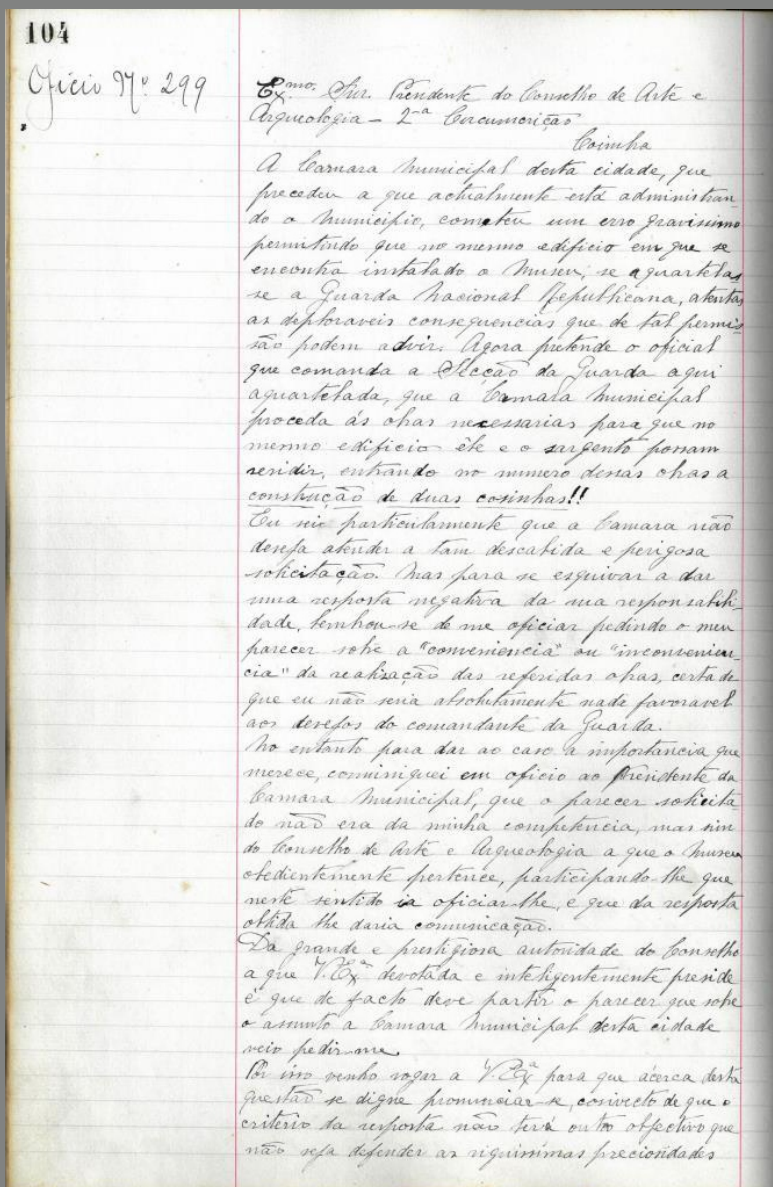 104
Oficio Nº 299
Ex.mo Snr. Presidente do Conselho de Arte e
Arqueologia - 2ª Circumscrição
Coimbra
A Camara Municipal desta cidade, que
precedeu a que actualmente está administran-
do o municipio, cometeu um erro gravissimo
permitindo que no mesmo edificio em que se
encontra instalado o Museu, se aquartelas-
se a Guarda Nacional Republicana, atentas
as deploraveis consequencias que de tal permis-
são podem advir. Agora pretende o oficial
que comanda a Secção da Guarda aqui
aquartelada, que a Camara Municipal
proceda ás obras necessarias para que no
mesmo edificio êle e o sargento possam
residir, entrando no numero dessas obras a
construção de duas cosinhas!!
Eu sei particularmente que a Camara não
deseja atender a tam descabida e perigosa
solicitação. Mas para se esquivar a dar
uma resposta negativa da sua responsabili-
dade, lembrou-se de me oficiar pedindo o meu
parecer sobre a "conveniencia" ou "inconvenien-
cia" da realisação das referidas obras, certa de
que eu não seria absolutamente nada favoravel
aos desejos do comandante da Guarda.
No entanto para dar ao caso a importancia que
merece, comuniquei em oficio ao Presidente da
Camara Municipal, que o parecer solicita-
do não era da minha competencia, mas sim
do Conselho de Arte e Arqueologia a que o Museu
obedientemente pertence, participando-lhe que
neste sentido ia oficiar-lhe, e que da resposta
obtida lhe daria comunicação.
Da grande e prestigiosa autoridade do Conselho
a que V. Exª devotada e inteligentemente preside
é que de facto deve partir o parecer que sobre
o assunto a Camara Municipal desta cidade
veio pedir-me.
Por isso venho rogar a V. Exª para que ácerca desta
questão se digne pronunciar-se, convicto de que o
criterio da resposta não terá outro objectivo que
não seja defender as riquissimas preciosidades